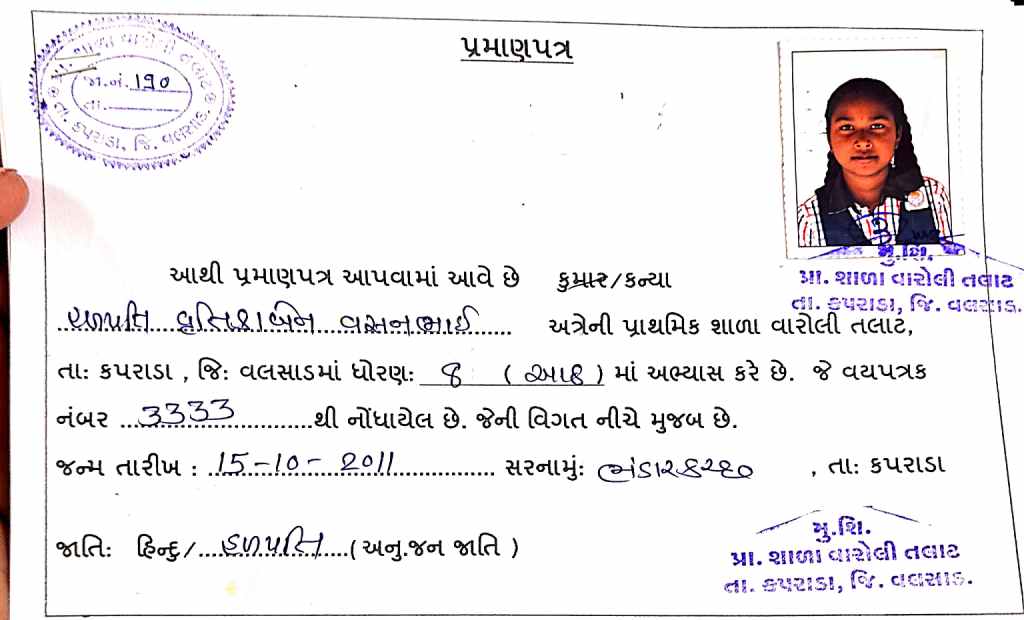 પ્રમાણપત્ર
પ્રા. શાળા વારોલી તલાટ
જા.નં. 190
તા.
તા. કપરાડા, જિ. વલસાડ.
આથી પ્રમાણપત્ર આપવામાં આવે છે કુમાર/કન્યા
હળપતિ વૃતિકાબેન વસનભાઈ અત્રેની પ્રાથમિક શાળા વારોલી તલાટ,
તા: કપરાડા , જિ: વલસાડમાં ધોરણ: 8 ( આઠ ) માં અભ્યાસ કરે છે. જે વયપત્રક
નંબર ...3333...થી નોંધાયેલ છે. જેની વિગત નીચે મુજબ છે.
જન્મ તારીખ : 15-10-2011 સરનામું: ભંડારકચ્છ , તા: કપરાડા
જાતિ: હિન્દુ/...હળપતિ...(અનુ.જન જાતિ )
મુ.શિ.
પ્રા. શાળા વારોલી તલાટ
તા. કપરાડા, જિ. વલસાડ.
મુ.શિ.
પ્રા. શાળા વારોલી તલાટ
તા. કપરાડા, જિ. વલસાડ.